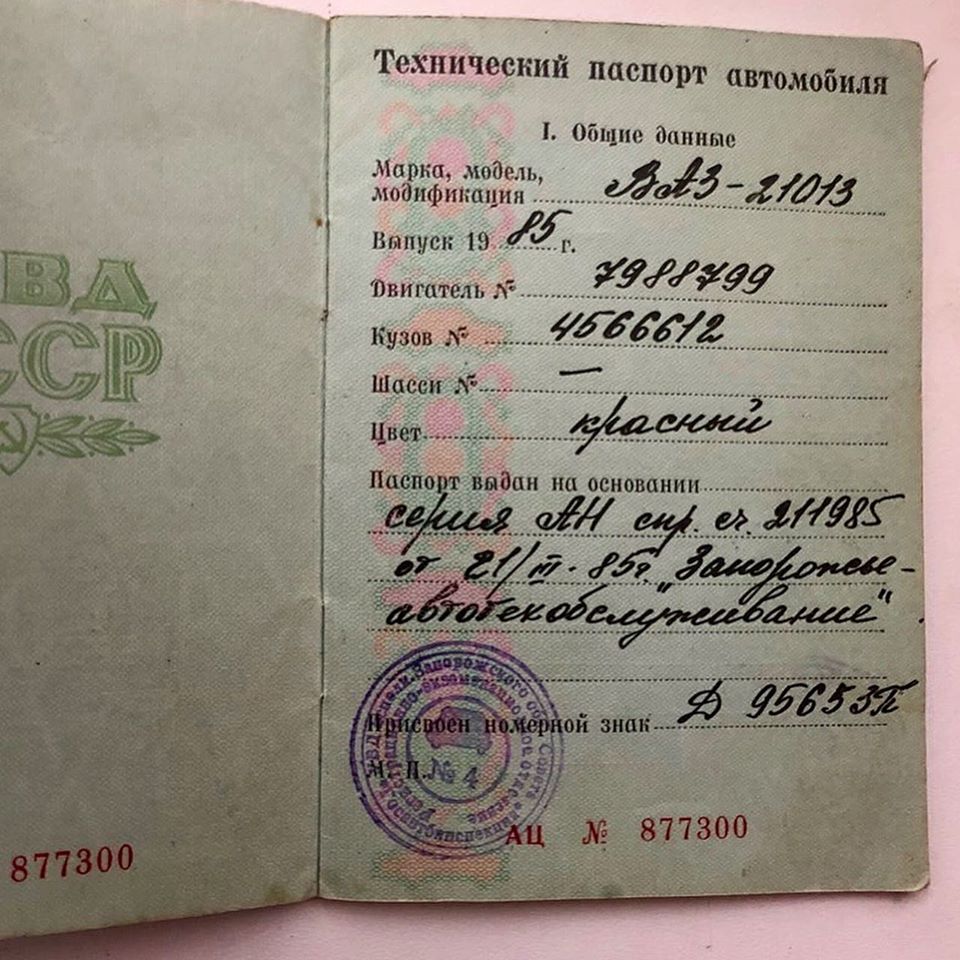 МВД
СССР
877300
Технический паспорт автомобиля
I. Общие данные
Марка, модель,
модификация ВАЗ-21013
Выпуск 19 85 г.
Двигатель № 7988799
Кузов № 4566612
Шасси № —
Цвет красный
Паспорт выдан на основании
серия АН спр. сч. 211985
от 21/III-85г. "Запорожье-
автотехобслуживание"
Присвоен номерной знак Д 9565ЗП
М. П.
№ 4
АЦ № 877300